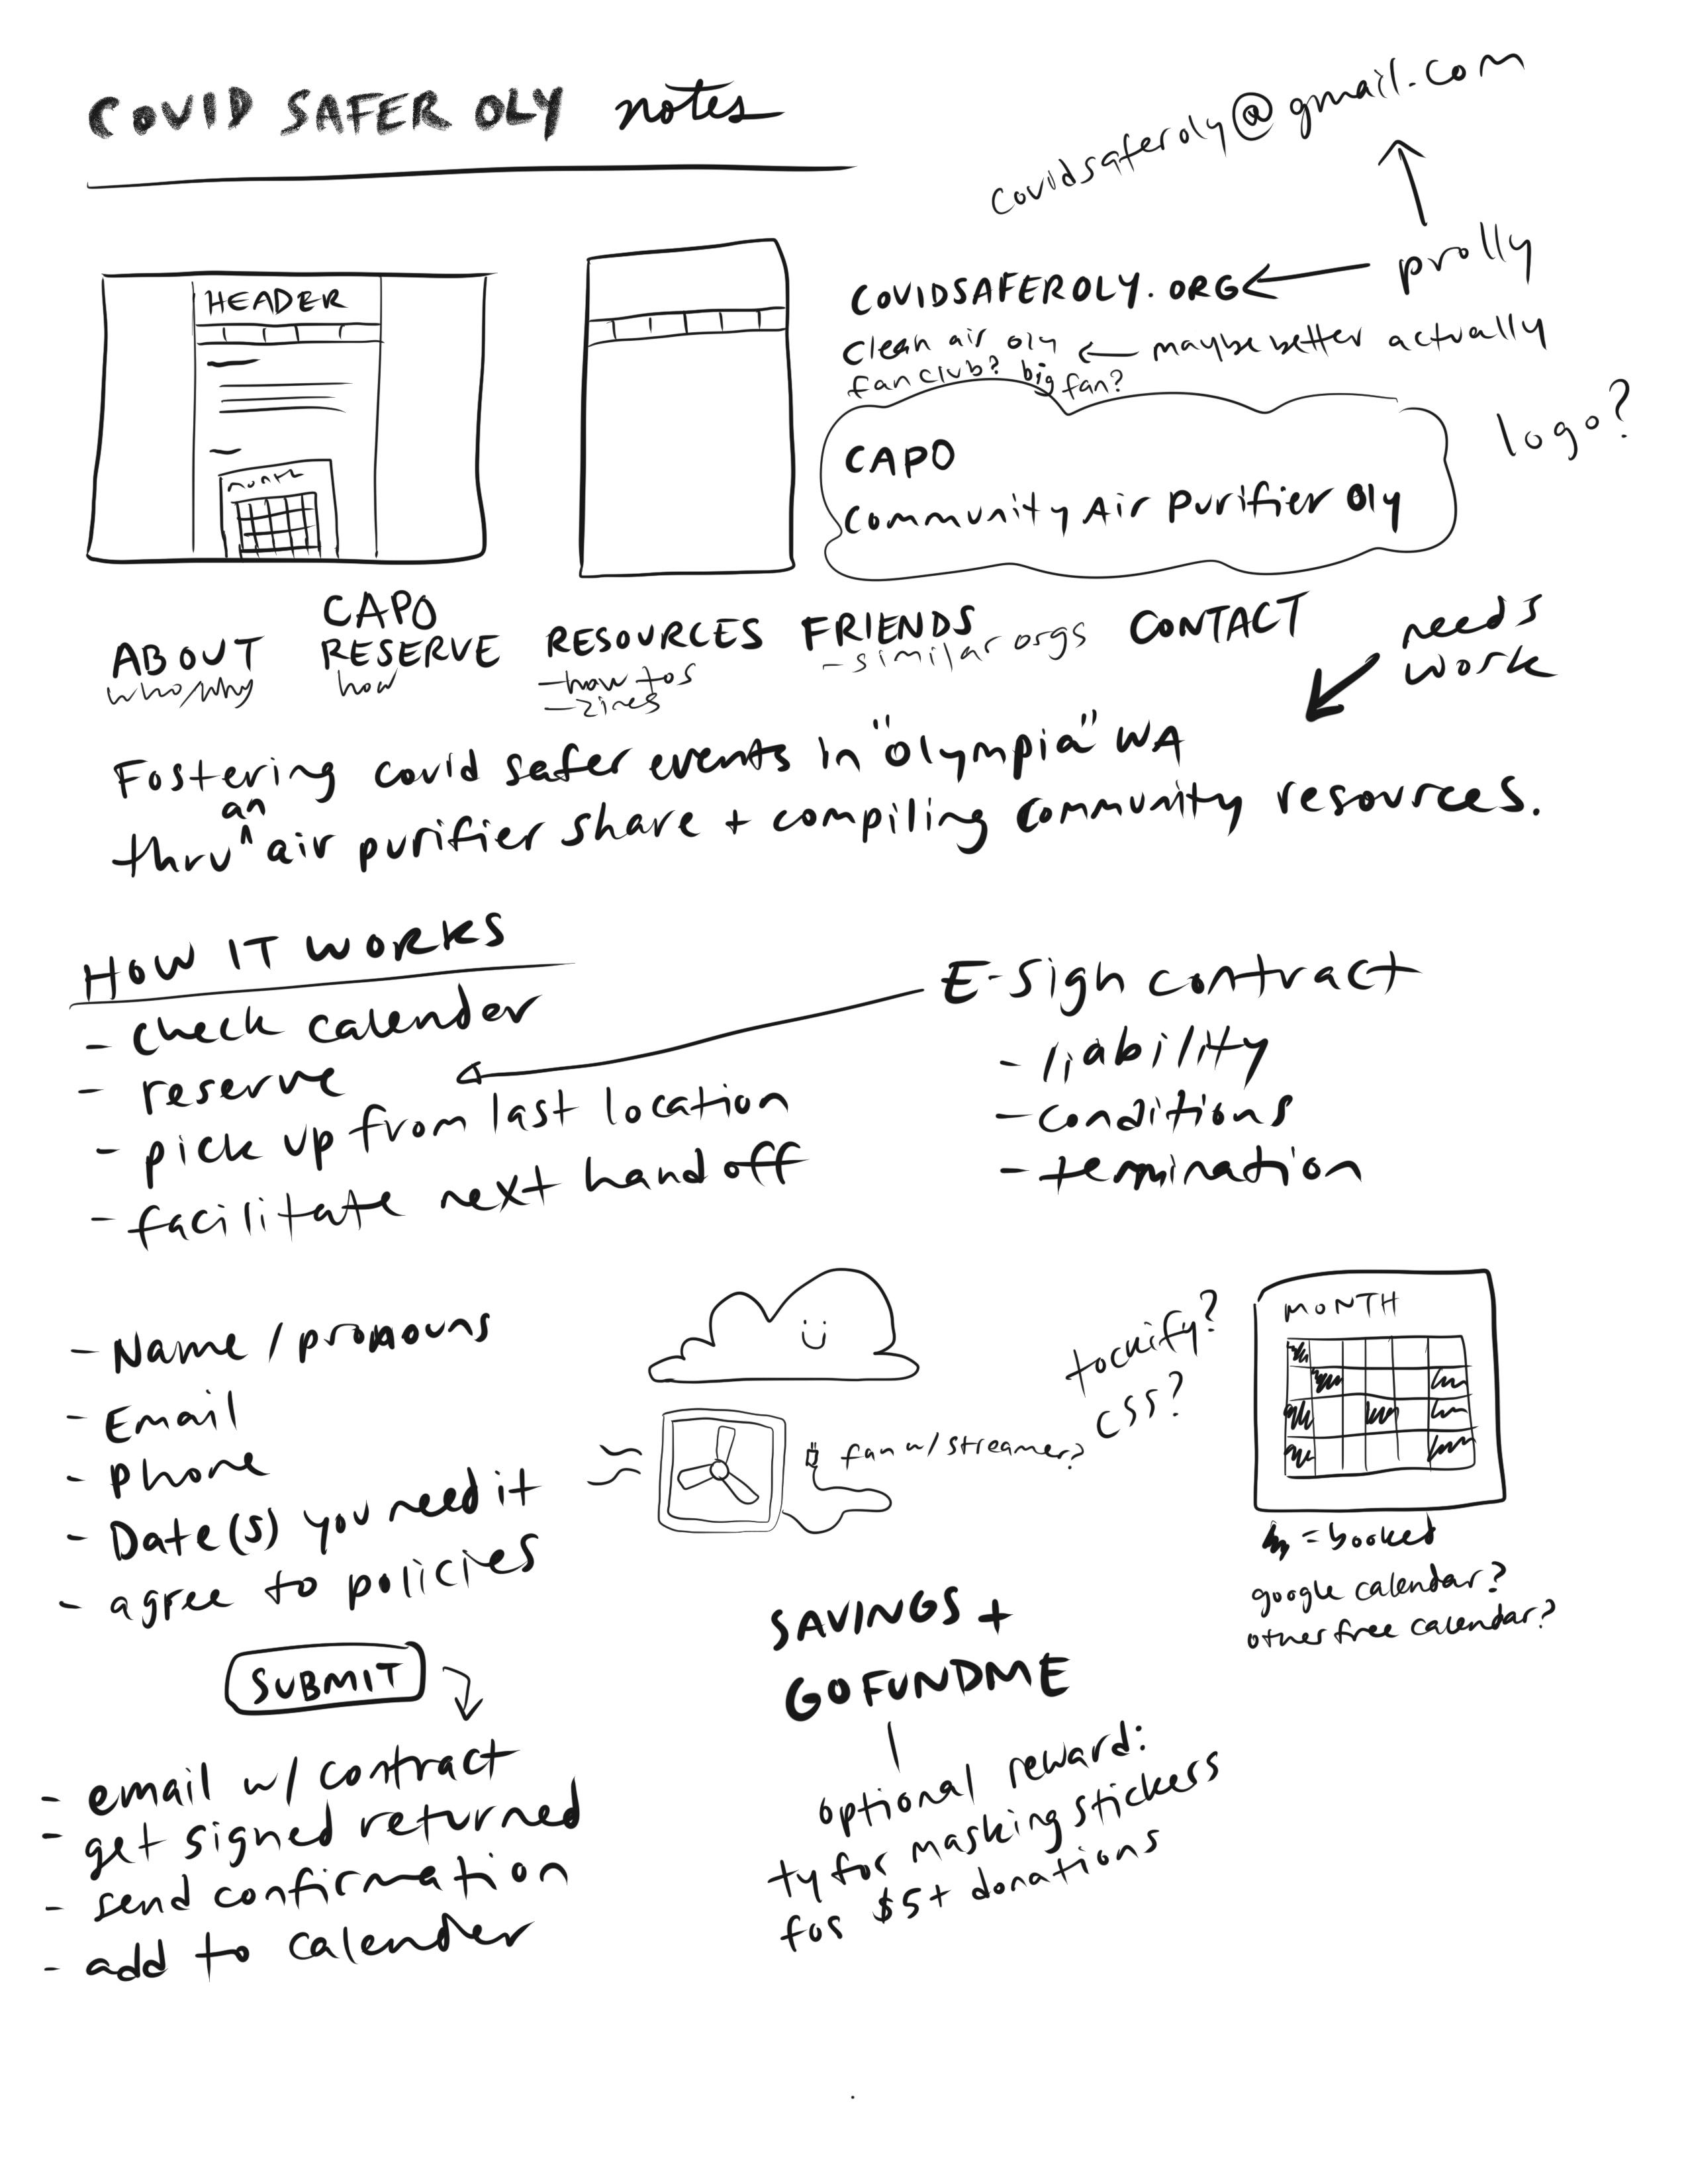 COVID SAFER OLY notes
covidsaferoly@gmail.com
prolly
COVIDSAFEROLY.ORG
clean air oly
maybe better actually
fan club? big fan?
logo?
CAPO
Community Air Purifier Oly
HEADER
MONTH
ABOUT
who/why
CAPO
RESERVE
how
RESOURCES
- how tos
- zines
FRIENDS
- similar orgs
CONTACT
needs
work
Fostering covid safer events in "olympia" WA
thru an air purifier share + compiling community resources.
HOW IT WORKS
- check calender
- reserve
- pick up from last location
- facilitate next hand off
E-Sign contract
- liability
- conditions
- termination
- Name / pronouns
- Email
- Phone
- Date(s) you need it
- agree to policies
SUBMIT
- email w/ contract
- get signed returned
- send confirmation
- add to calender
fan w/ streamer?
tockify?
css?
MONTH
= booked
google calendar?
other free calendar?
SAVINGS +
GOFUNDME
optional reward:
ty for masking stickers
for $5+ donations